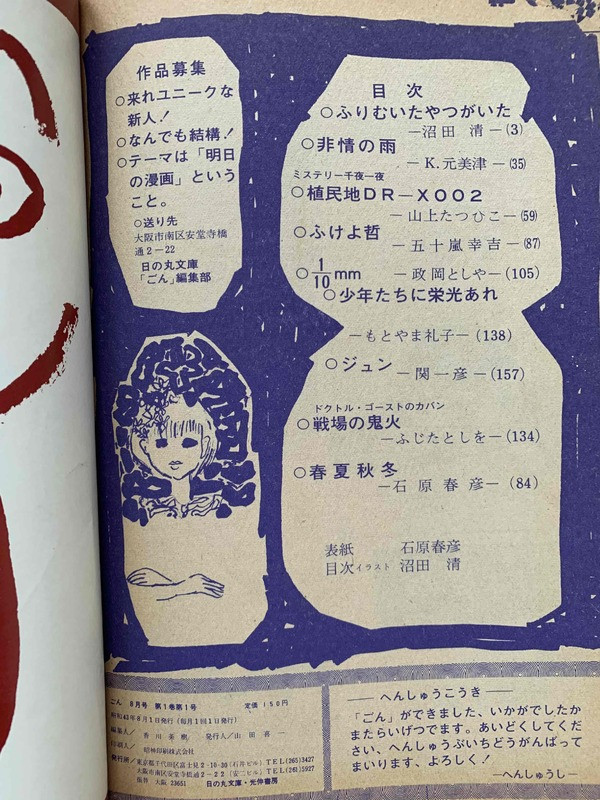 作品募集
○来れユニークな
新人！
○なんでも結構！
○テーマは「明日
の漫画」という
こと。
○送り先
大阪市南区安堂寺橋
通2－22
日の丸文庫
「ごん」編集部
目次
○ふりむいたやつがいた
―沼田 清―(3)
○非情の雨
―K.元美津―(35)
ミステリー千夜一夜
○植民地DR―X002
―山上たつひこ―(59)
○ふけよ哲
―五十嵐幸吉―(87)
○1/10mm ―政岡としや―(105)
○少年たちに栄光あれ
―もとやま礼子―(138)
○ジュン
―関一彦―(157)
ドクトル・ゴーストのカバン
○戦場の鬼火
―ふじたとしを―(134)
○春夏秋冬
―石原春彦―(84)
表紙 石原春彦
目次イラスト 沼田 清
ごん 8月号 第1巻第1号 定価150円
昭和43年8月1日発行(毎月1回1日発行)
編集人／ 発行人／山田喜一
印刷人／ 昭神印刷株式会社
発行所／東京都千代田区富士見2-10-30(石井ビル)TEL(265)3427
大阪市南区安堂寺橋通2－22(安二ビル)TEL(261)5927
振替 大阪 23651 日の丸文庫・光伸書房
――へんしゅうこうき――
「ごん」ができました、いかがでしたか
またらいげつでます。あいどくしてくだ
さい、へんしゅうぶいちどうがんばって
まいります、よろしく！
―へんしゅうし―